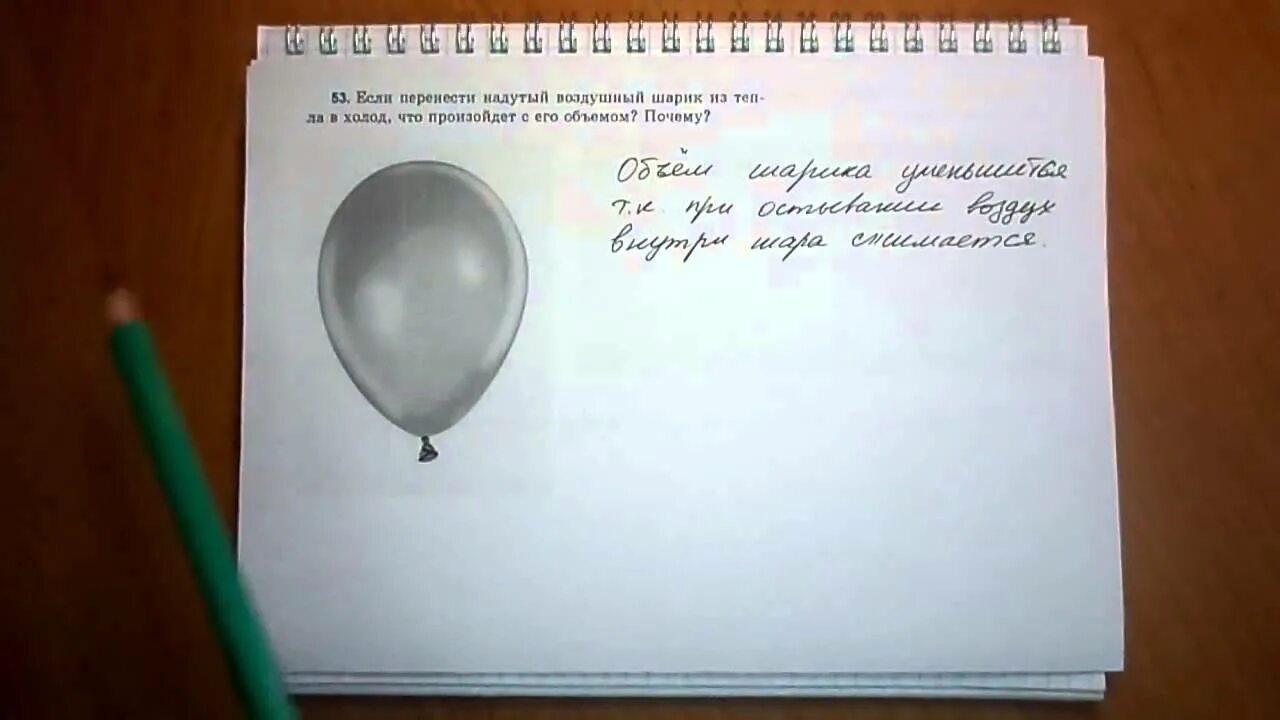 53. Если перенести надутый воздушный шарик из теп-
ла в холод, что произойдет с его объемом? Почему?
Объём шарика уменьшится
т.к. при остывании воздух
внутри шара сжимается.